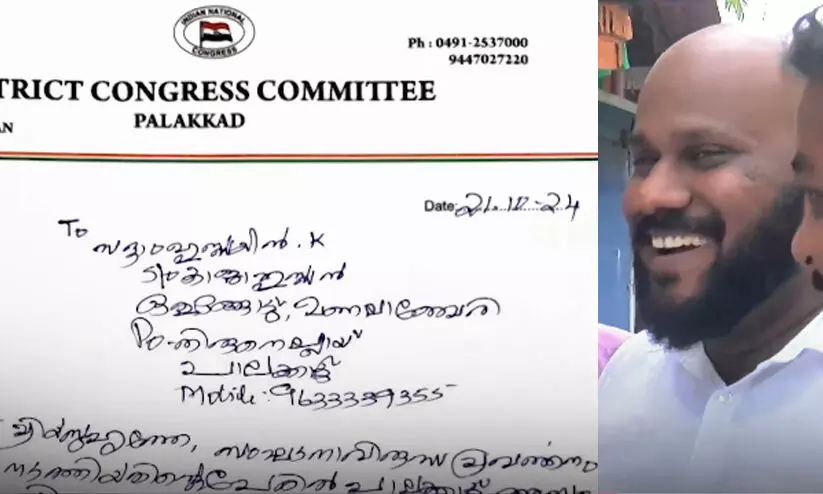 INDIAN NATIONAL
CONGRESS
Ph : 0491-2537000
9447027220
TRICT CONGRESS COMMITTEE
AN
PALAKKAD
Date: 21.10-24
To
സദ്ദാംഹുസൈൻ.K
S/o കാജാഹുസൈൻ
മണലാഞ്ചേരി
Po-തിരുനെല്ലായ്
പാലക്കാട്
Mobile: 9633339355
സംഘടനാവിരുദ്ധ പ്രവർത്തനം
നടത്തിയതിന്റെ പേരിൽ പാലക്കാട്